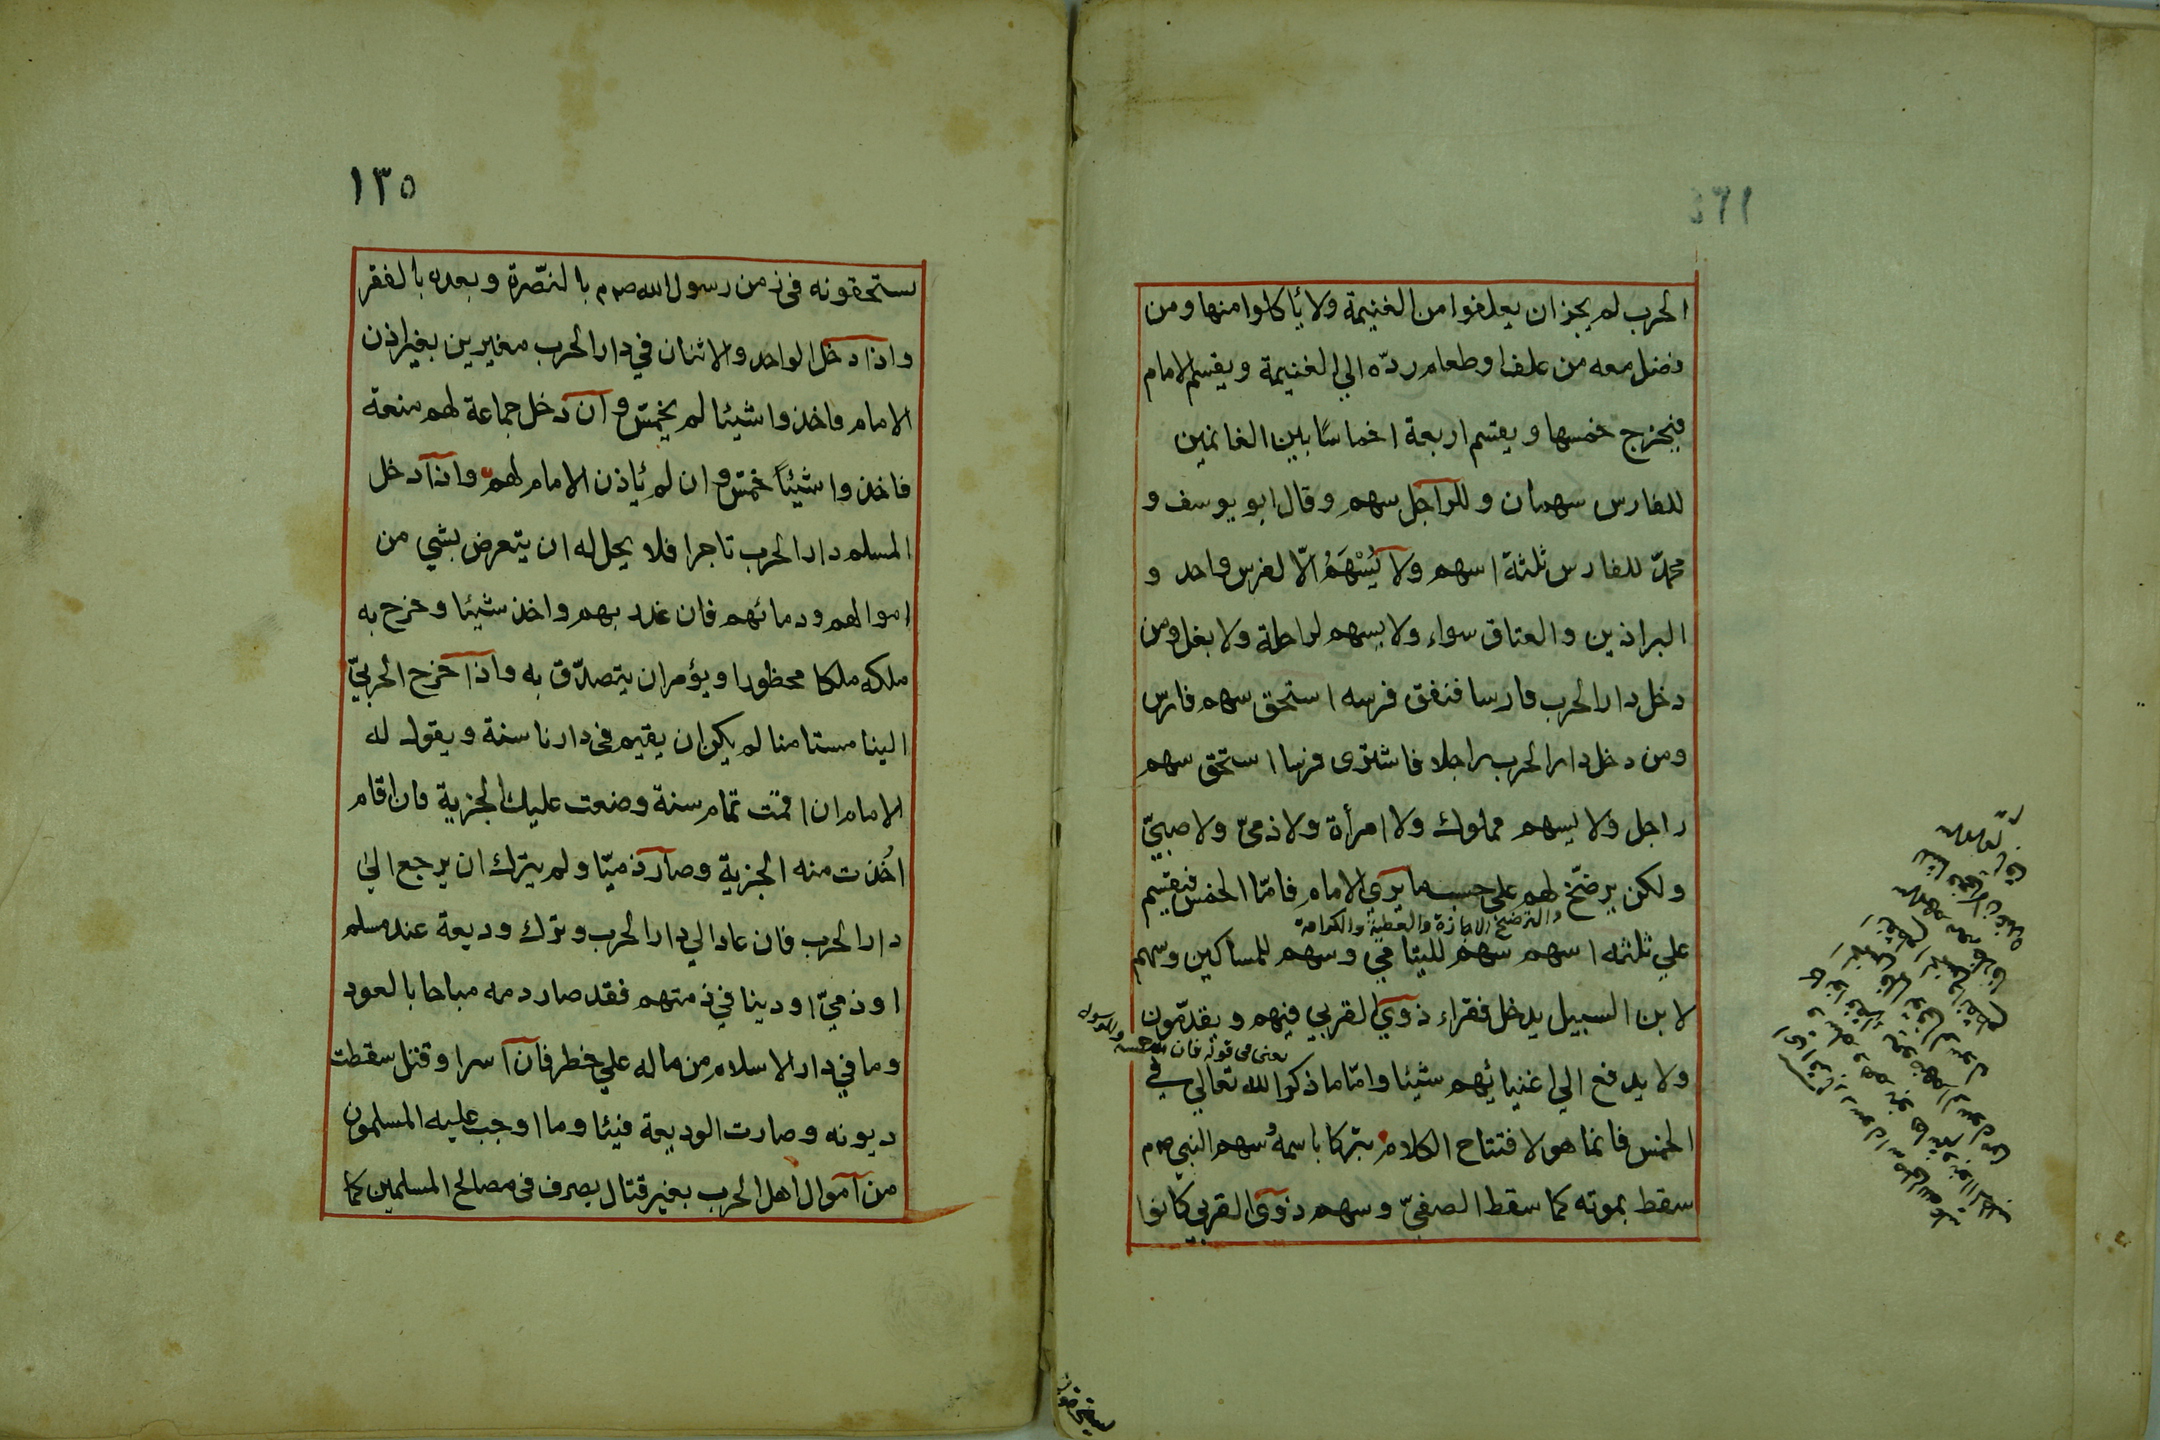 الحرب لم يجز ان يعلفوا من الغنيمة ولا يأكلوا منها ومن
فضل معه من علف او طعام ردّه الي الغنيمة ويقسم الامام
فيخرج خمسها ويقسم اربعة اخماسًا بين الغانمين
للفارس سهمان وللراجل سهم وقال ابو يوسف و
محمدّ للفارس ثلثة اسهم ولا يُسْهَمُ الّا لفرس واحد و
البراذين والعتاق سواء ولا يسهم لراحلة ولا بغل ومن
دخل دار الحرب فارسا فنفق فرسه استحق سهم فارس
ومن دخل دار الحرب راجلا فاشترى فرسا استحق سهم
راجل ولا يسهم مملوك ولا امرأة ولا ذميّ ولا صبيّ
ولكن يرضّخ لهم علي حسب ما يري الامام فامّا الخمس فيقسم
والترضيخ الاجازة والعطية والكرامة
علي ثلثه اسهم سهم لليتامي وسهم للمساكين وسهم
لابن السبيل يدخل فقراء ذوي القربي فيهم ويقدّمون
يعنى من قوله فان لله خمسه وللرسول
ولا يدفع الي اغنيائهم شيئا وامّا ما ذكر الله تعالي في
الخمس فانما هو لافتتاح الكلام تبركا باسمه وسهم النبي صم
سقط بموته كما سقط الصفيّ وسهم ذوى القربي كانوا
١٣٥
يستحقونه فى زمن رسول الله صم بالنّصرة وبعده بالفقر
واذا دخل الواحد والاثنان في دار الحرب مغيرين بغير اذن
الامام فاخذوا شيئا لم يخمّس وان دخل جماعة لهم منعة
فاخذوا شيئاً خمّس وان لم يأذن الامام لهم واذا دخل
المسلم دار الحرب تاجرا فلا يحل له ان يتعرض بشي من
اموالهم ودمائهم فان غدر بهم واخذ شيئا وخرج به
ملكه ملكا محظورا ويؤمر ان يتصدّق به واذا خرج الحربيّ
الينا مستامنا لم يكن ان يقيم فى دارنا سنة ويقول له
الامام ان اقمت تمام سنة وضعت عليك الجزية فان اقام
اُخذت منه الجزية وصار ذميّا ولم يترك ان يرجع الي
دار الحرب فان عاد الي دار الحرب وترك وديعة عند مسلم
او ذميّ او دينا في ذمتهم فقد صار دمه مباحا بالعود
وما في دار الاسلام من ماله علي خطر فان اسر او قتل سقطت
ديونه وصارت الوديعة فيئا وما اوجب عليه المسلمون
من اموال اهل الحرب بغير قتال يصرف فى مصالح المسلمين كما